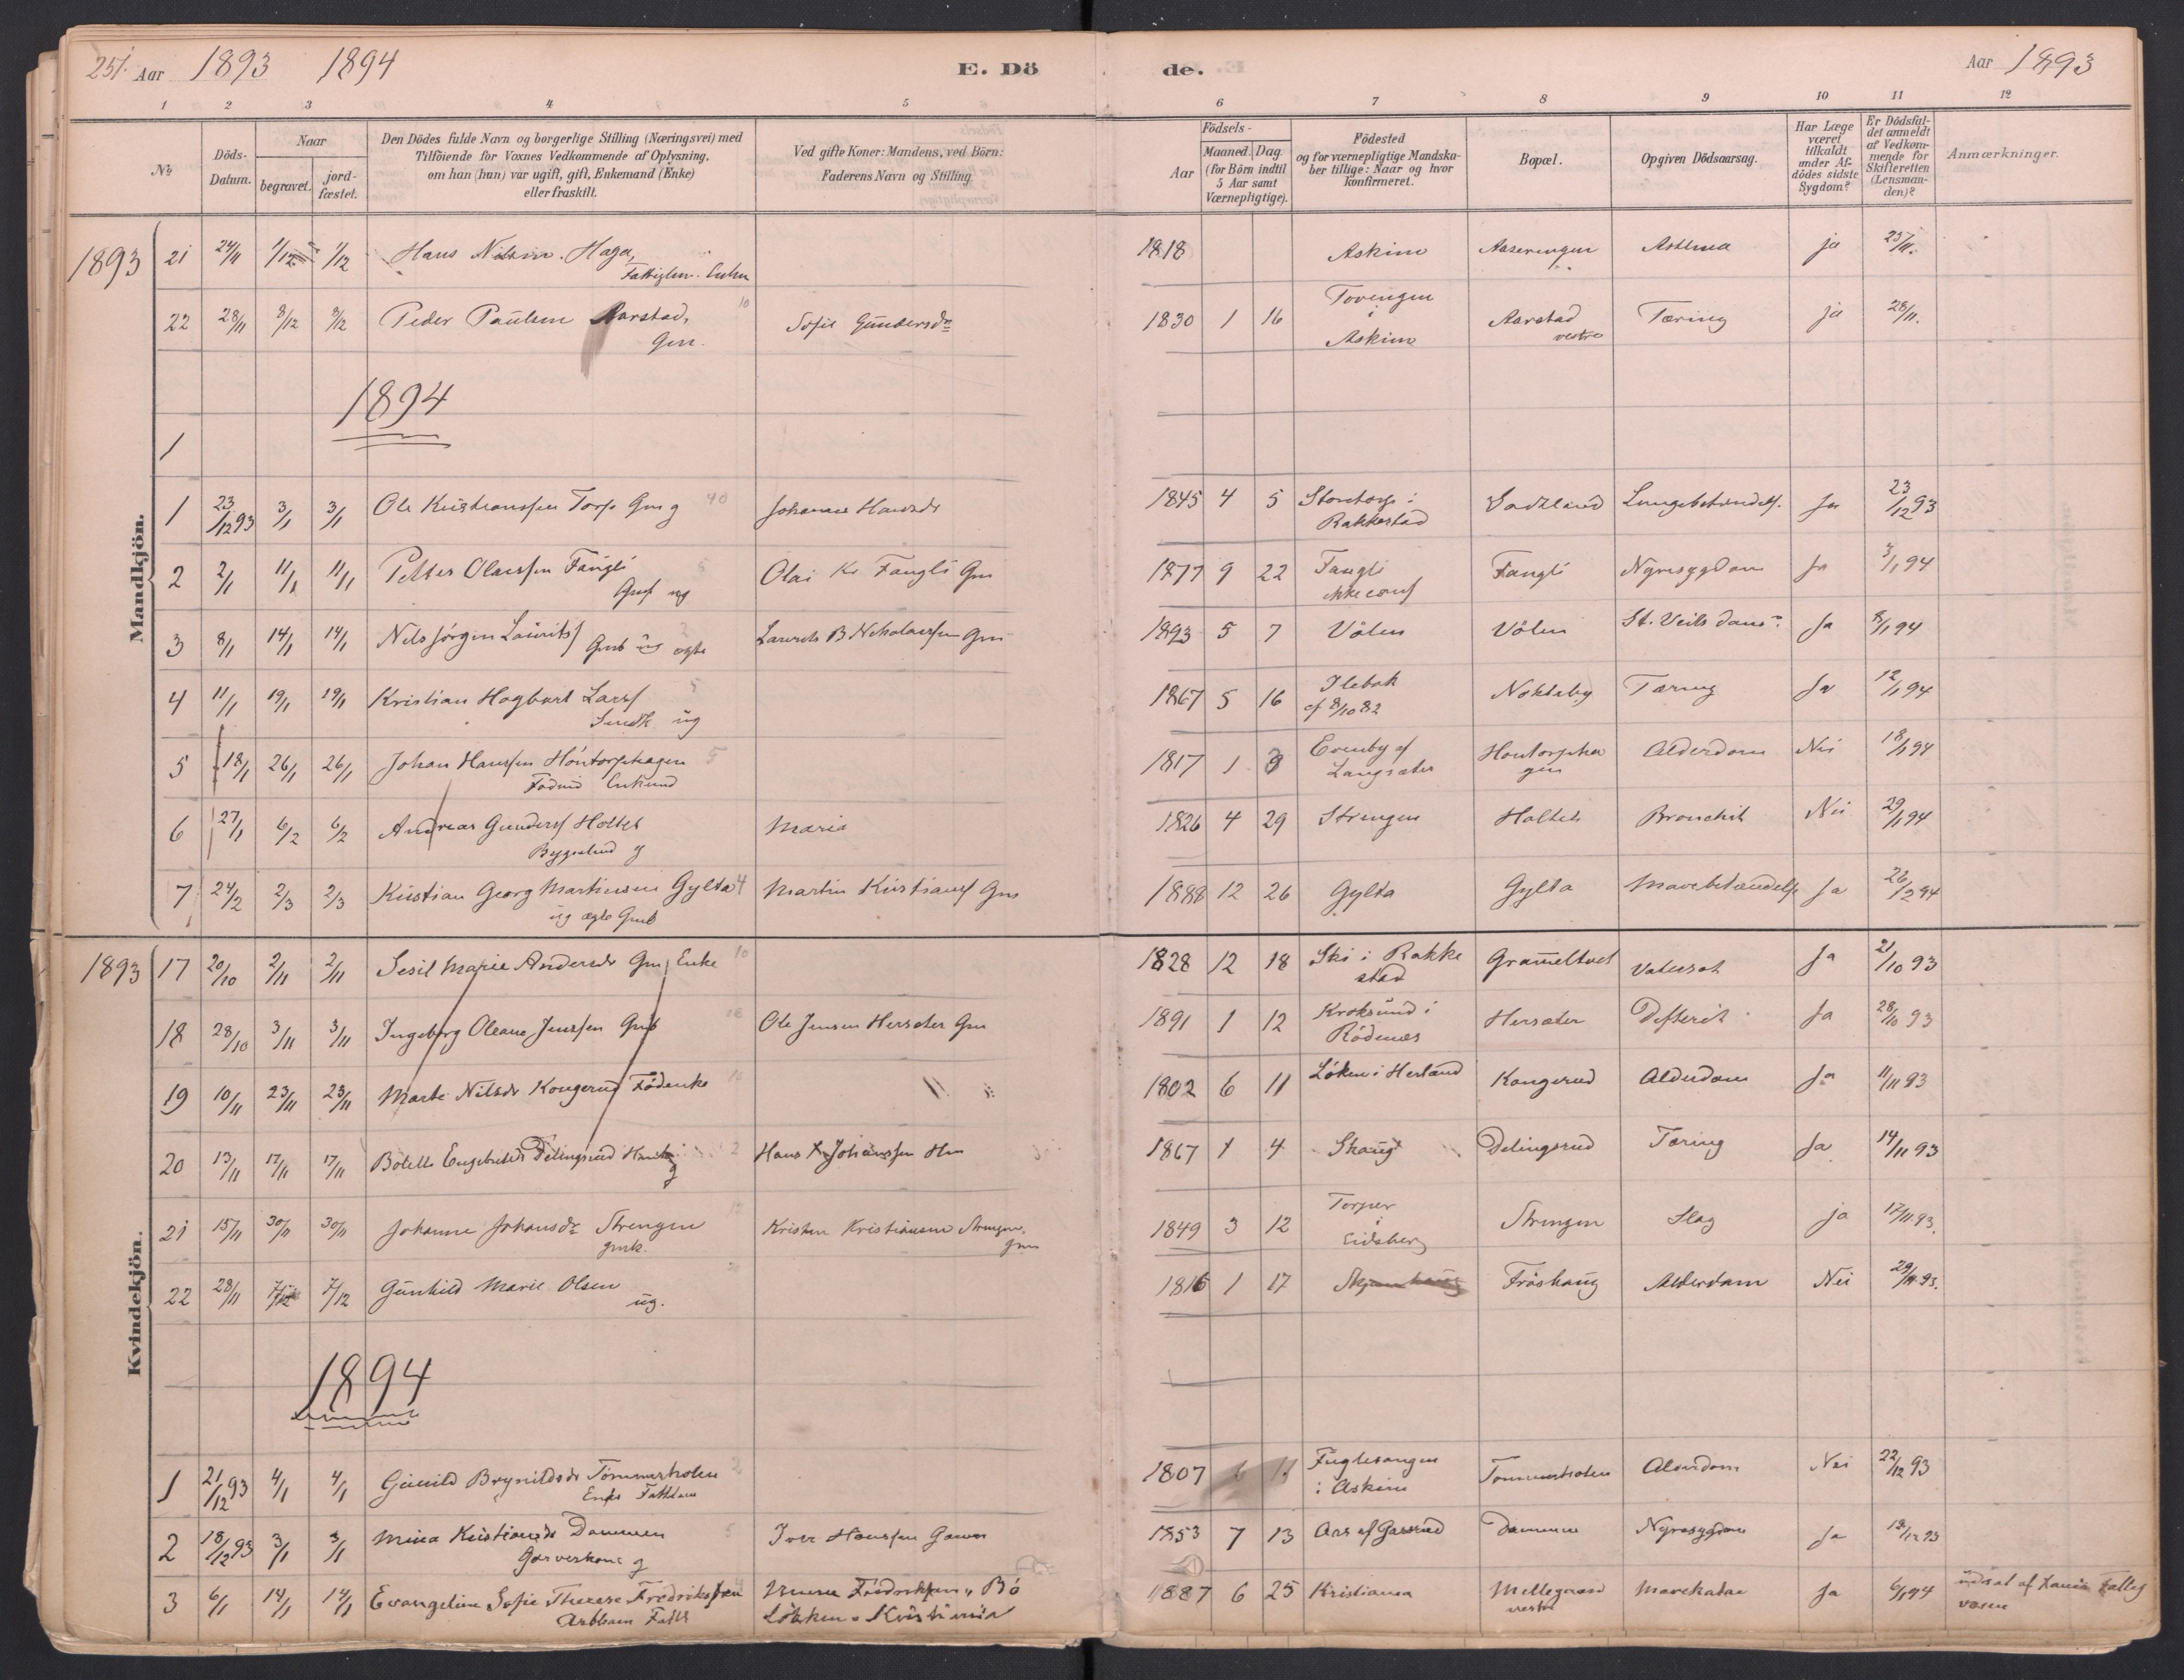 251. Aar 1893 1894 E. Dö de. Aar 1893
1 2 3 4 5 6 7 8 9 10 11 12
No
Döds-Datum.
Naar
begravet.
jord-fæstet.
Den Dödes fulde Navn og borgerlige Stilling (Næringsvei) med
Tilföiende for Voxnes Vedkommende af Oplysning,
om han (hun) var ugift, gift, Enkemand (Enke)
eller fraskilt.
Ved gifte Koner: Mandens, ved Börn:
Faderens Navn og Stilling.
Födsels-
Aar
Maaned. Dag.
(for Börn indtil
5 Aar samt
Værnepligtige).
Födested
og for værnepligtige Mandska-
ber tillige: Naar og hvor
konfirmeret.
Bopæl.
Opgiven Dödsaarsag.
Har Læge
været
tilkaldt
under Af-
dödes sidste
Sygdom?
Er Dödsfal-
det anmeldt
af Vedkom-
mende for
Skifteretten
(Lensman-
den)?
Anmærkninger.
Mandkjön.
1893 21 24/11 1/12 1/12 Hans Nilsen Haga, 1818 Askim Aaserengen Asthma ja 25/11.
Fattiglem. Enkm
22 28/11 8/12 8/12 Peder Paulsen Aarstad, 10 Sofie Gundersdr 1830 1 16 Tovengen i Askim Aarstad vestre Tæring ja 28/11.
Gm.
1894
1
1 23/12 93 3/1 3/1 Ole Kristianssen Torp Gm g 40 Johanne Hansdr 1845 4 5 Storetorp i Rakkestad Lungebetændels. Ja 23/12 93
2 2/1 11/1 11/1 Petter Olaussen Fangli 5 Olai Kr. Fangli Gm 1877 9 22 Fangli Fangli Nyresygdom Ja 3/1 94
ug ikke conf
3 8/1 14/1 14/1 Nils Jørgen Laurits Gmb ug ægte 2 Laurits B Nikolaissen Gm 1893 5 7 Völen Völen St. Veits dans Ja 8/1 94
4 11/1 19/1 19/1 Kristian Hagbart Lars 5 1867 5 16 Ilebæk Noktaby Tæring Ja 12/1 94
ug cf 8/10 82
5 18/1 26/1 26/1 Johan Hanssen Höntorphagen 5 1817 1 3 Evenby af Langsæter Hontorpha gen Alderdom Nei 18/1 94
Födraad Enkmd
6 27/1 6/2 6/2 Andreas Gunders Holtet Maria 1826 4 29 Strengen Holtet Bronchit Nei 29/1 94
g
7 24/2 2/3 2/3 Kristian Georg Martinsen Gylta 4 Martin Kristians Gm 1888 12 26 Gylta Gylta Mavebetændels Ja 26/2 94
ug ægte Gmb
Kvindekjön.
1893 17 20/10 2/11 2/11 Sesil Marie Andersdr Gm Enke 10 1828 12 18 Ski i Rakke stad Grameltvet Vatersot Ja 21/10 93
18 28/10 3/11 3/11 Ingeborg Oleane Jenssen Gmb Ole Jensen Hersæter Gm 1891 1 12 Kroksund i Rödenæs Hersæter Difterit Ja 28/10 93
19 10/11 23/11 23/11 Marte Nilsdr Kongerud Födenke 1802 6 11 Löken i Herland Kongerud Alderdom Ja 11/11 93
20 13/11 17/11 17/11 Botelle Engebretsdr Delingsrud g 2 Hans Johanssen Hm 1867 1 4 Skaug Delingsrud Tæring Ja 14/11 93
21 15/11 30/11 30/11 Johanne Johansdr Strengen Kristen Kristiansen Strengen. Gm 1849 3 12 Torper i Eidsberg Strengen Slag ja 17/11 93.
gmk.
22 28/11 7/12 7/12 Gunhild Marie Olsen 1816 1 17 Skjønhaug Fröshaug Alderdom Nei 29/11 93.
ug.
1894
1 21/12 93 4/1 4/1 Gunild Brynildsdr Tömmerholen 2 1807 Fuglesangen i Askim Tommerholen Alderdom Nei 22/12 93
Enke
2 18/12 93 3/1 3/1 Mina Kristiansdr Dammen 5 Iver Hanssen Garver 1853 7 13 Aas af Dammen Nyresygdom Ja 19/12 93
Garverkone g
3 6/1 14/1 14/1 Evangeline Sofie Therese Fredrikssen Fredrikssen Bö 1887 6 25 Kristiania Mellegaard vestre Mavekatar Ja 6/1 94 udsat af Kania Fattig
Arbbarn Fatt Löken Kristiania væsen